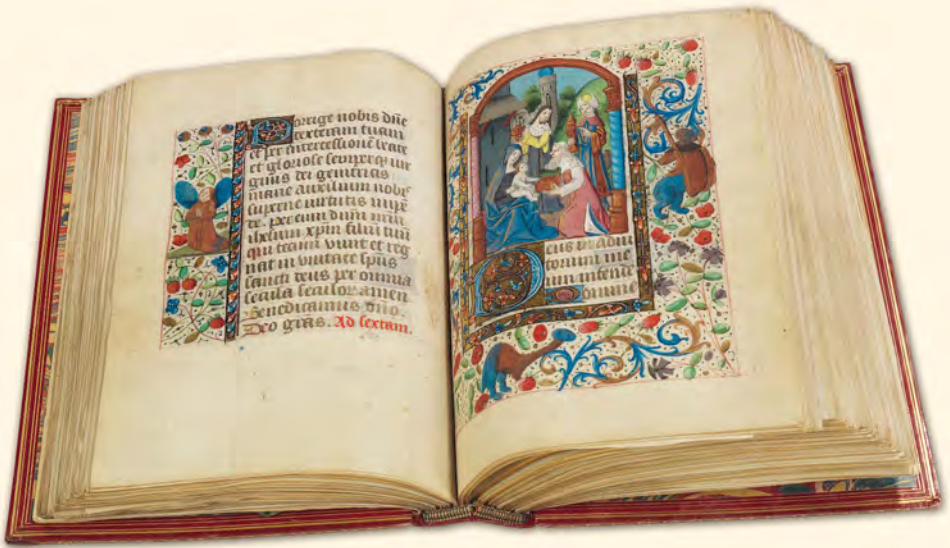 Porrige nobis dñe
dexteram tuam
et per intercessionē beate
et gloriose semperq; vir
ginis dei genitricis
marie auxilium nobis
superne virtutis impē
de. per eum dum nrm
ihesum xpm filium tuū
qui tecum vivit et reg
nat in unitate spūs
sancti deus per omnia
secula seculor amen
Benedicamus dño.
Deo grãs. Ad sextam.
Deus in adiu
torium me
um intende
Domine